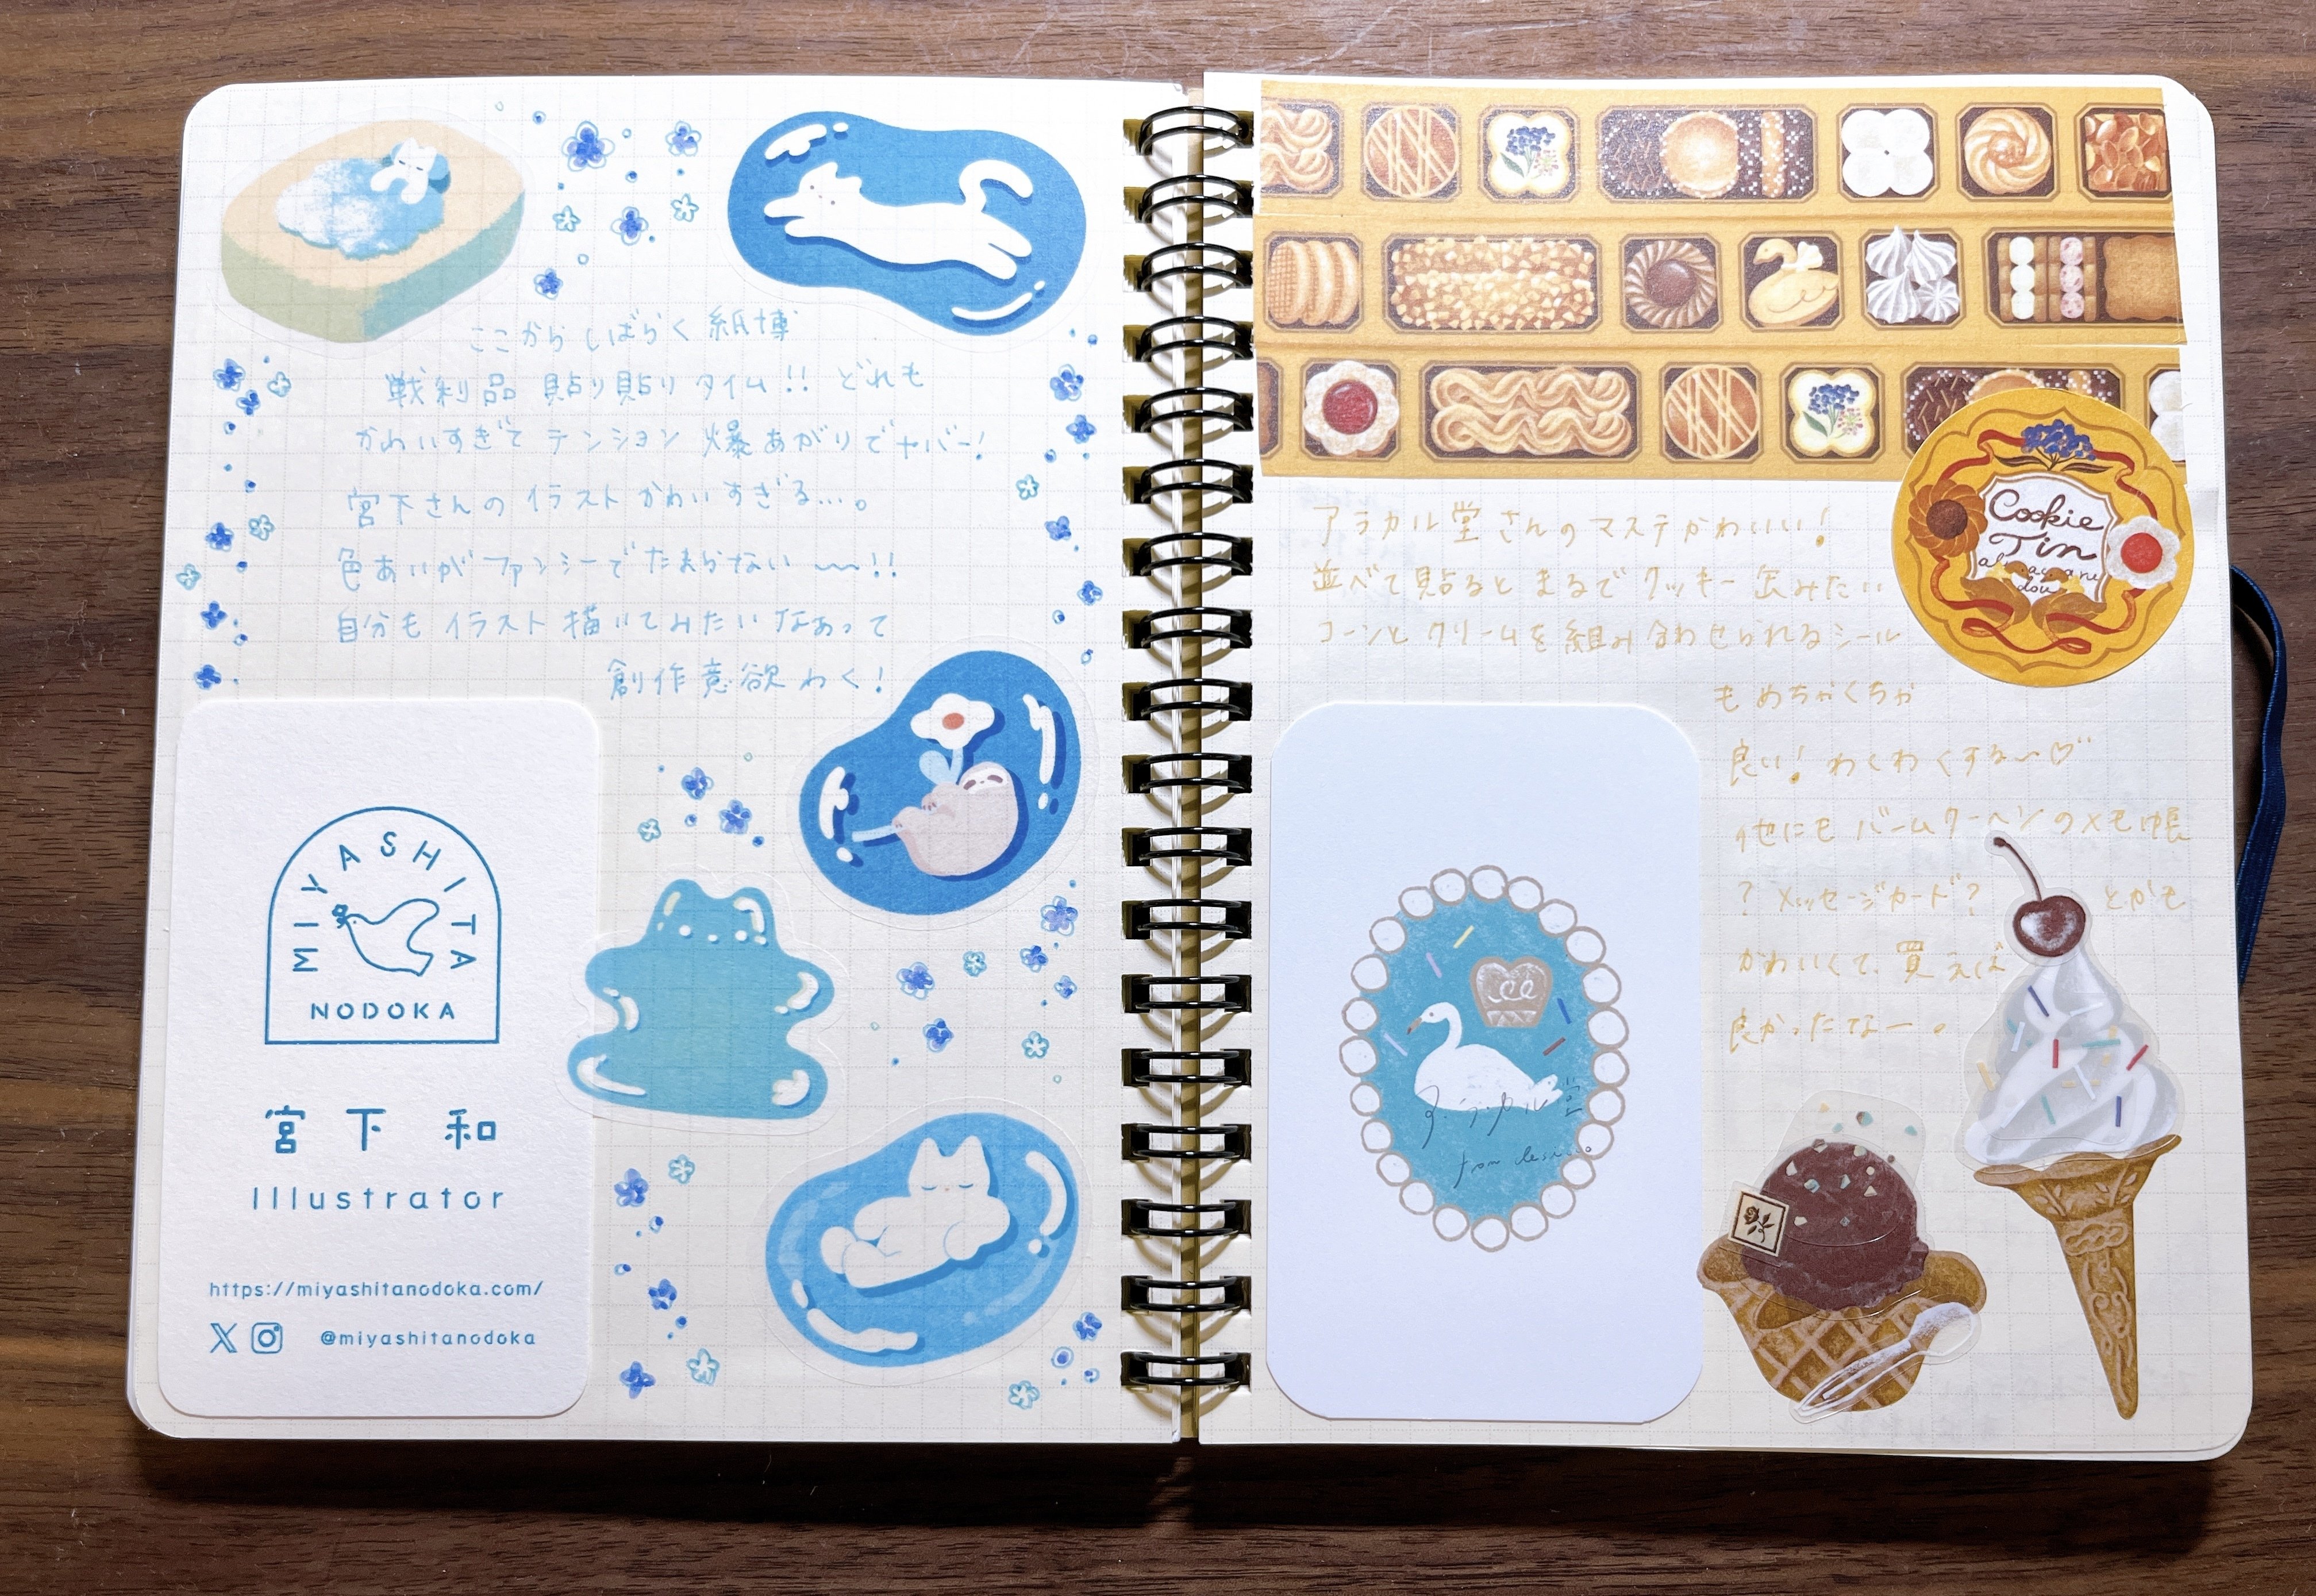 ここからしばらく紙博
戦利品 貼り貼りタイム!! どれも
かわいすぎて テンション 爆あがりでヤバー!
宮下さんの イラスト かわいすぎる...。
色あいが ファンシーで たまらない 〜〜!!
自分も イラスト 描いてみたい なあって
創作意欲 わく!
MIYASHITA
NODOKA
宮下 和
Illustrator
https://miyashitanodoka.com/
@miyashitanodoka
Cookie
Tin
dou
アラカル堂 さんの マステ かわいい!
並べて貼ると まるで クッキー缶みたい
コーンと クリームを 組み合わせられるシール
も めちゃくちゃ
良い! わくわくする〜♡
他にも バームクーヘンのメモ帳
? メッセージカード? とかも
かわいくて、買えば
良かったなー。
Ice
アラカル堂
from